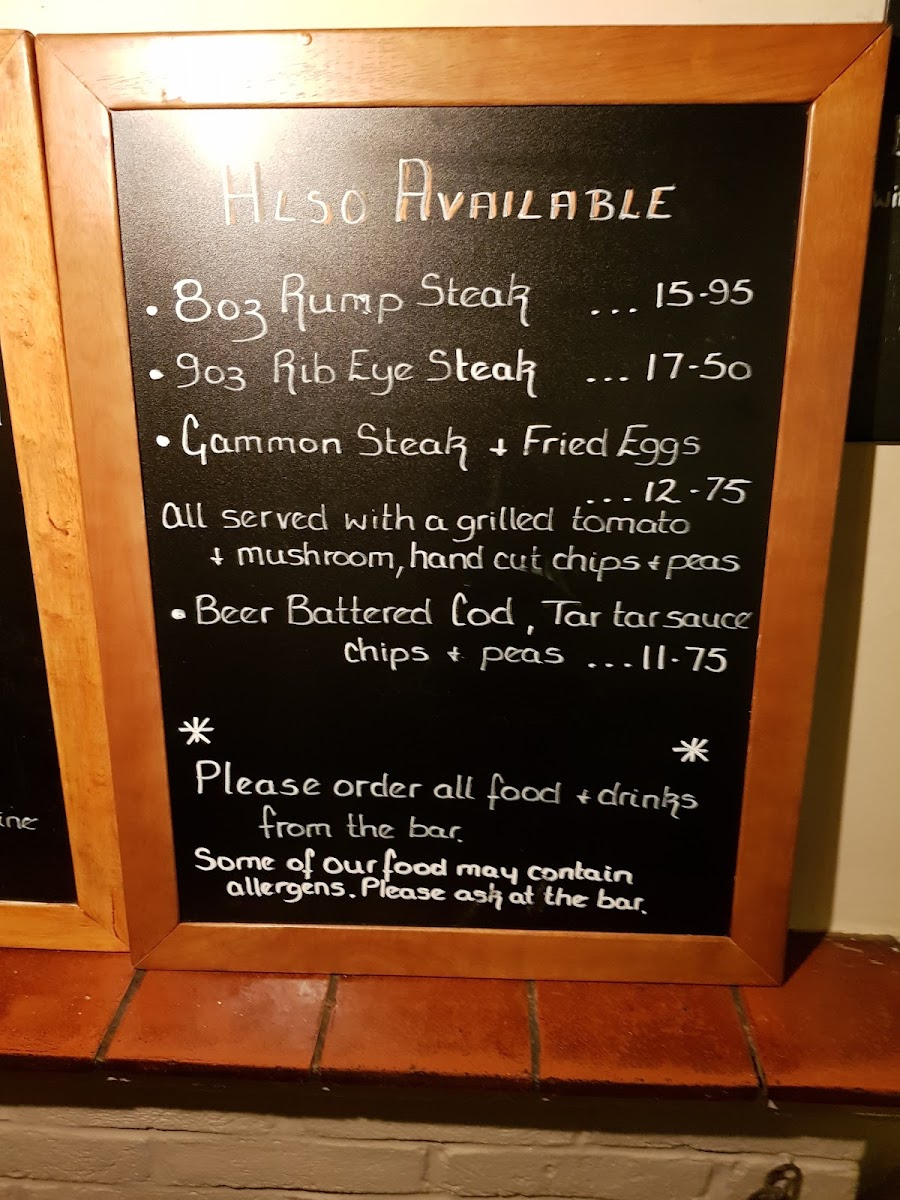 Also Available
• 8oz Rump Steak ... 15-95
• 9oz Rib Eye Steak ... 17-50
• Gammon Steak + Fried Eggs
... 12-75
All served with a grilled tomato
+ mushroom, hand cut chips + peas
• Beer Battered Cod, Tar tar sauce
chips + peas ... 11-75
* *
Please order all food + drinks
from the bar.
Some of our food may contain
allergens. Please ask at the bar.